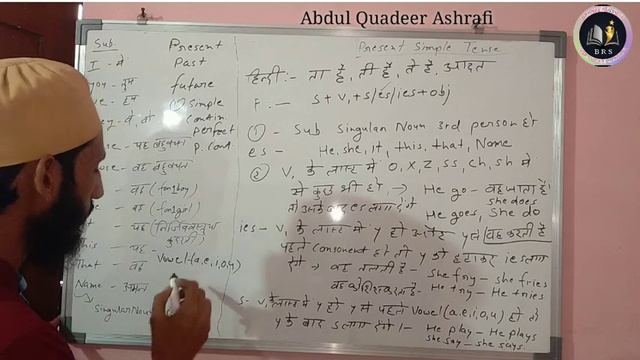 Abdul Quadeer Ashrafi
BRS
Sub.
I - मे
you - तुम
हम
वे, वो
यह बहुवचन
वह बहुवचन
वह (for boy)
वह (for girl)
यह
This - यह
That - वह
Name - अमन
Singular Noun
Present
Past
future
① Simple
Contin.
perfect
p. cont.
Vowel-(a,e,i,o,u)
Present Simple Tense
हिन्दी:- ता है, ती है, ते है, आदत
F. — S+V₁+S/es/ies+obj
① - Sub Singular Noun 3rd person हो
es - He, she, it, this, that, Name
② V₁ के लास्ट मे O, X, Z, SS, Ch, Sh मे
से कुछ भी हो, → He go - वह जाता है।
तो उसके बाद es लगा देंगे He goes, She do
she does
वह करती है
ies - V₁ के लास्ट मे y हो और y से
पहले Consonent हो तो y को हटाकर ies लगा
देंगे → वह तलती है - she fry - she fries
वह कोशिश करता है - He try - He tries
S - V₁ के लास्ट मे y हो y से पहले Vowel (a,e,i,o,u) हो तो
y के बाद S लगा देंगे।- He play - He plays
she say - she says.